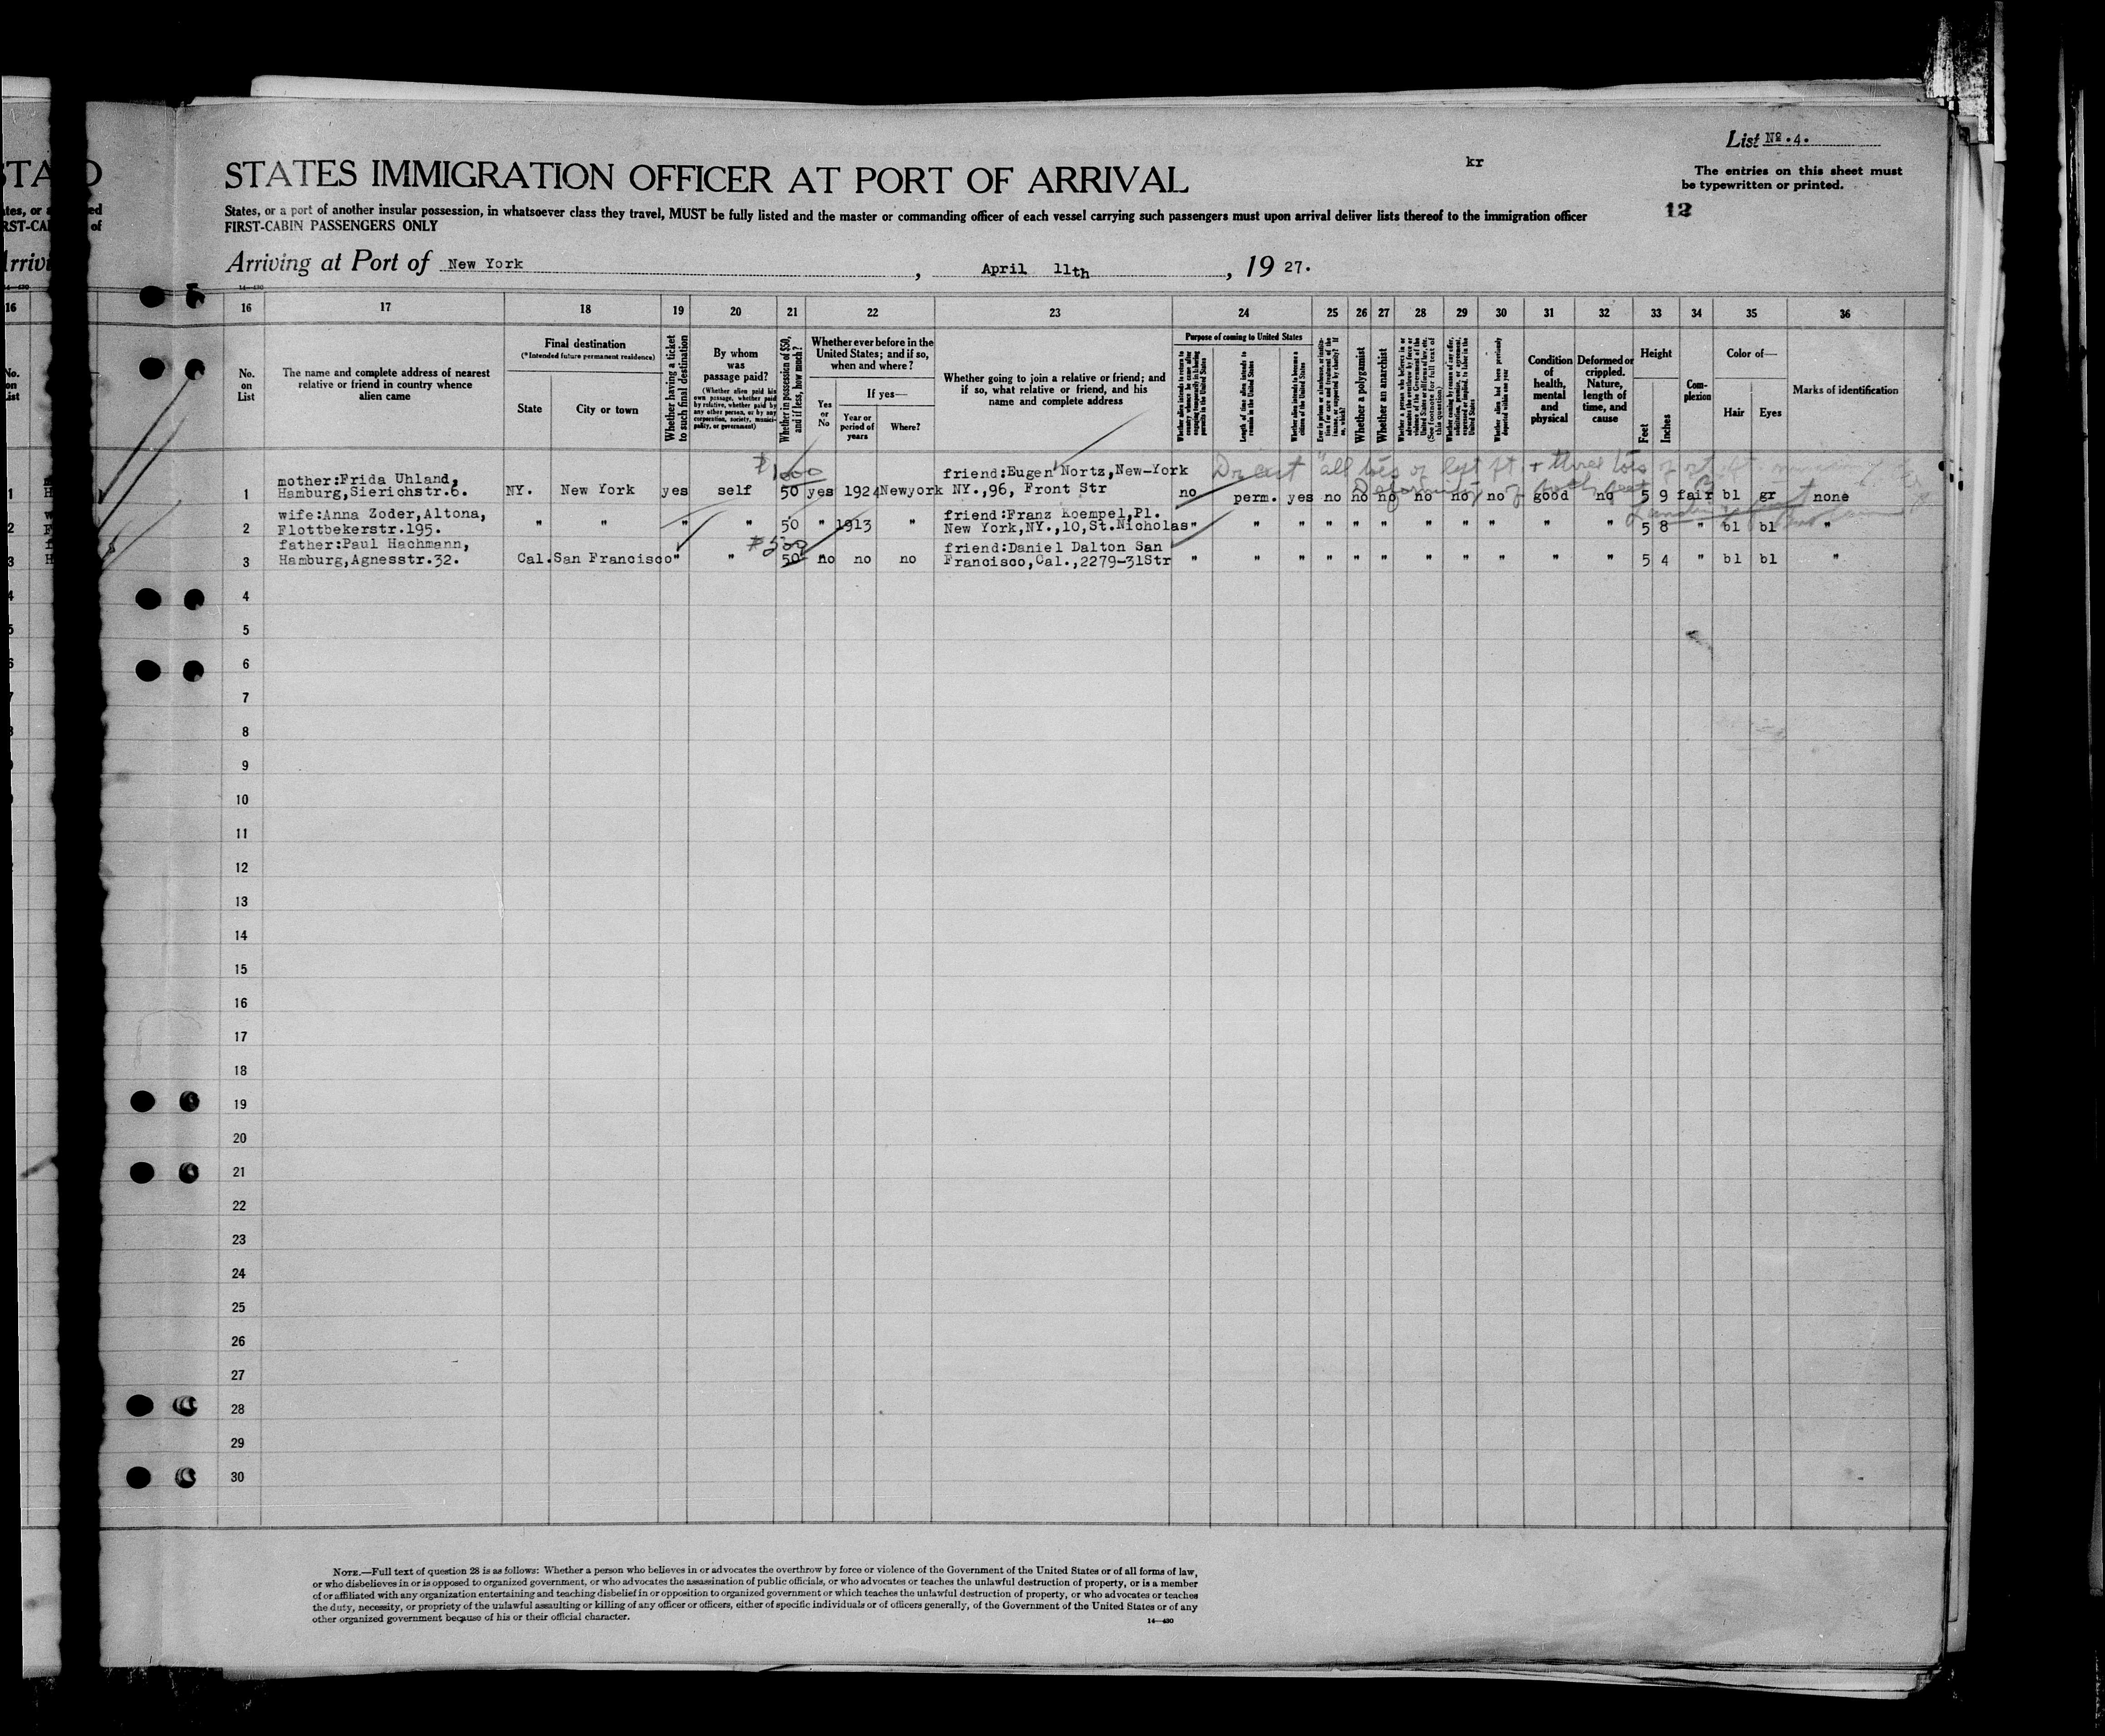 List No. 4.
kr
STATES IMMIGRATION OFFICER AT PORT OF ARRIVAL
The entries on this sheet must
be typewritten or printed.
12
States, or a port of another insular possession, in whatsoever class they travel, MUST be fully listed and the master or commanding officer of each vessel carrying such passengers must upon arrival deliver lists thereof to the immigration officer
FIRST-CABIN PASSENGERS ONLY
Arriving at Port of New York, April 11th, 19 27.
14—430
16 17 18 19 20 21 22 23 24 25 26 27 28 29 30 31 32 33 34 35 36
No.
on
List
The name and complete address of nearest
relative or friend in country whence
alien came
Final destination
(*Intended future permanent residence)
State
City or town
Whether having a ticket
to such final destination
By whom
was
passage paid?
(Whether alien paid his
own passage, whether paid
by relative, whether paid by
any other person, or by any
corporation, society, munici-
pality, or government)
Whether in possession of $50,
and if less, how much?
Whether ever before in the
United States; and if so,
when and where?
Yes
or
No
If yes—
Year or
period of
years
Where?
Whether going to join a relative or friend; and
if so, what relative or friend, and his
name and complete address
Purpose of coming to United States
Length of time alien intends to
remain in the United States
Whether alien intends to become a
citizen of the United States
Whether a polygamist
Whether an anarchist
Whether alien has been previously
deported within one year
Condition
of
health,
mental
and
physical
Deformed or
crippled.
Nature,
length of
time, and
cause
Height
Feet
Inches
Com-
plexion
Color of—
Hair
Eyes
Marks of identification
$1000
all toes of left ft. + three toes of rt. ft.
Deformity of both feet
1 mother:Frida Uhland,
Hamburg,Sierichstr.6. NY. New York yes self 50 yes 1924 Newyork friend:Eugen Nortz,New-York
NY.,96, Front Str no perm. yes no no no no no no good no 5 9 fair bl gr none
2 wife:Anna Zoder,Altona,
Flottbekerstr.195. " " " " 50 " 1913 " friend:Franz Koempel,Pl.
New York,NY.,10,St.Nicholas " " " " " " " " " " " 5 8 " bl bl "
$500
3 father:Paul Hachmann,
Hamburg,Agnesstr.32. Cal. San Francisco " " 50 no no no friend:Daniel Dalton San
Francisco,Cal.,2279-31Str " " " " " " " " " " " 5 4 " bl bl "
4
5
6
7
8
9
10
11
12
13
14
15
16
17
18
19
20
21
22
23
24
25
26
27
28
29
30
NOTE.—Full text of question 28 is as follows: Whether a person who believes in or advocates the overthrow by force or violence of the Government of the United States or of all forms of law,
or who disbelieves in or is opposed to organized government, or who advocates the assassination of public officials, or who advocates or teaches the unlawful destruction of property, or is a member
of or affiliated with any organization entertaining and teaching disbelief in or opposition to organized government or which teaches the unlawful destruction of property, or who advocates or teaches
the duty, necessity, or propriety of the unlawful assaulting or killing of any officer or officers, either of specific individuals or of officers generally, of the Government of the United States or of any
other organized government because of his or their official character.
14—430